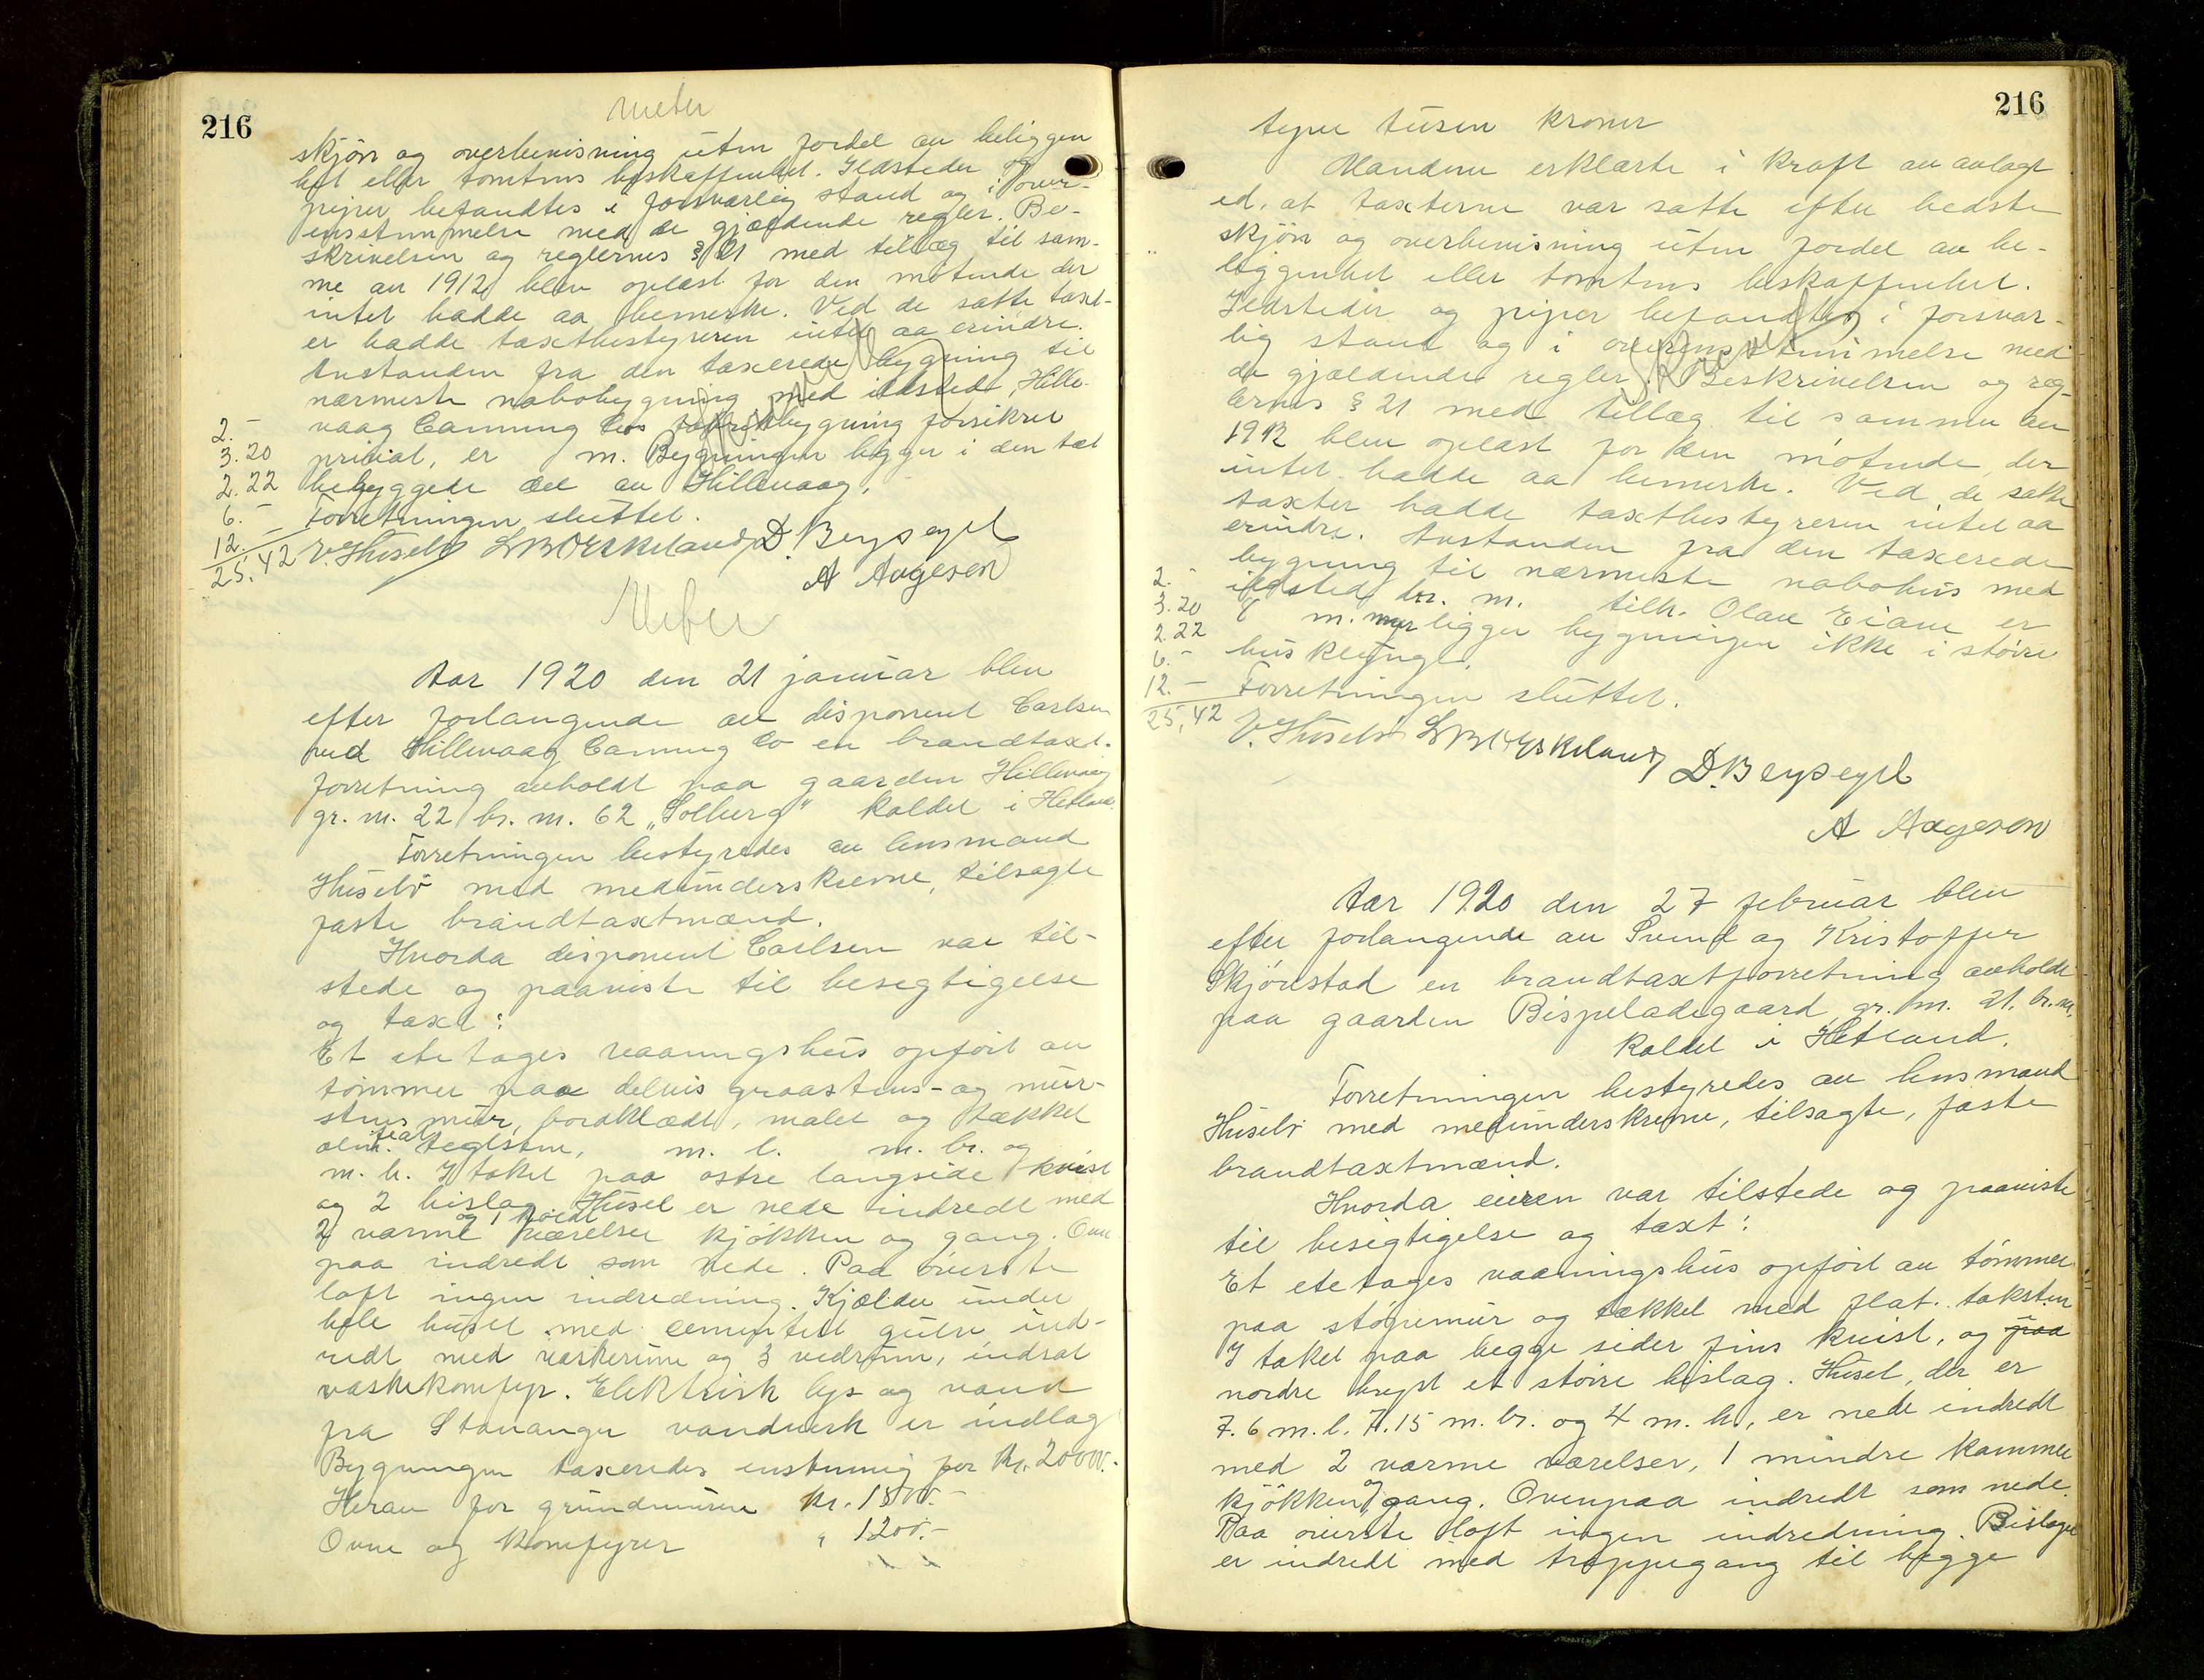 216
skjøn og overbevisning uten fordel av beliggen
het eller tomtens beskaffenhet. Ildsteder og
piper befandtes i forsvarlig stand og i over-
ensstemmelse med de gjældende regler. Be-
skrivelsen og reglernes § 21 med tillæg til sam-
me av 1912 blev oplæst for den møtende der
intet hadde aa bemerke. Ved de satte taxt-
er hadde taxtbestyreren intet aa erindre.
Avstanden fra den taxerede bygning til
nærmeste nabobygning med ildsted, Hille-
vaag Canning Cos fabrikbygning forsikret
privat, er m. Bygningen ligger i den tæt
bebyggede del av Hillevaag.
Forretningen sluttet.
2.-
3.20
2.22
6.-
12.-
25,42
V. Husebø LBOrskeland D. Bergsagel
A Aagesen
Aar 1920 den 21 januar blev
efter forlangende av disponent Carlsen
ved Hillevaag Canning Co en brandtaxt-
forretning avholdt paa gaarden Hillevaag
gr. nr. 22 br. nr. 62 „Solberg" kaldet i Hetland.
Forretningen bestyredes av lensmand
Husebø med medunderskrevne, tilsagte
faste brandtaxtmænd.
Hvorda disponent Carlsen var til-
stede og paaviste til besegtigelse
og taxt:
Et etetages vaaningshus opført av
tømmer paa delvis graastens- og mur-
stensmur, bordklædt, malet og tækket
alm. teglsten, m. l. m. br. og
m. h. I taket paa østre langside kvist
og 2 bislag. Huset er nede indredt med
2 varme og 1 koldt værelser kjøkken og gang. Oven
paa indredt som nede. Paa øverste
loft ingen indredning. Kjælder under
hele huset med cementert gulv, ind-
redt med vaskerum og 3 vedrum, indsat
vaskekomfyr. Elektrisk lys og vand
fra Stavanger vandverk er indlag
Bygningen taxeredes enstemmig for Kr. 20000.-
Herav for grundmuren Kr. 1500.-
Ovne og komfyrer " 1200.-
216
type tusen kroner
Mændene erklærte i kraft av avlagt
ed, at taxterne var satte efter bedste
skjøn og overbevisning uten fordel av be-
liggenhet eller tomtens beskaffenhet.
Ildsteder og piper befandtes i forsvar-
lig stand og i overensstemmelse med
de gjældende regler. Beskrivelsen og reg-
lernes § 21 med tillæg til samme av
1912 blev oplæst for den møtende, der
intet hadde aa bemerke. Ved de satte
taxter hadde taxtbestyreren intet aa
erindre. Avstanden fra den taxerede
bygning til nærmeste nabohus med
ildsted br. nr. tilh. Olav Eiane er
m. ligger bygningen ikke i større
husklynge.
Forretningen sluttet.
2.-
3.20
2.22
6.-
12.-
25,42
V. Husebø LBOrskeland D. Bergsagel
A Aagesen
Aar 1920 den 27 februar blev
efter forlangende av Svend og Kristoffer
Skjørestad en brandtaxtforretning avholdt
paa gaarden Bispeladegaard gr. nr. 21. br. nr.
kaldet i Hetland.
Forretningen bestyredes av lensmand
Husebø med medunderskrevne, tilsagte, faste
brandtaxtmænd.
Hvorda eieren var tilstede og paaviste
til besigtigelse og taxt:
Et etetages vaaningshus opført av tømmer
paa støpemur og tækket med flat. taksten
I taket paa begge sider fins kvist, og paa
nordre bryst et større bislag. Huset, der er
7.6 m. l. 7.15 m. br. og 4 m. h., er nede indredt
med 2 varme værelser, 1 mindre kammer
kjøkken og gang. Ovenpaa indredt som nede.
Paa øverste loft ingen indredning. Bislaget
er indredt med troppegang til begge